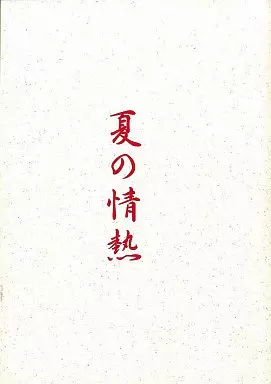 夏の情熱